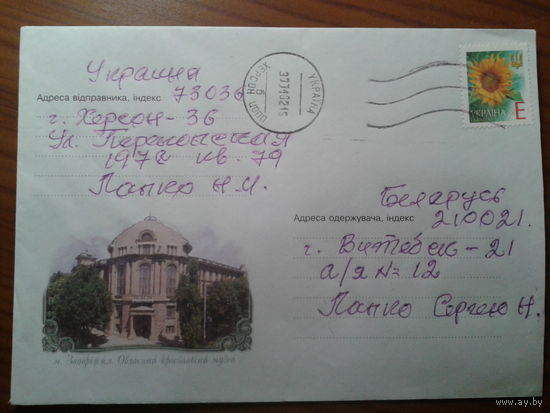 Україна
Адреса відправника, індекс 73036
г. Херсон-36
Ул.
197г кв. 79
Панко Н.И.
УКРАЇНА
ХЕРСОН 6
УКРАЇНА
E
Беларусь
Адреса одержувача, індекс 210021.
г. Витебск-21
а/я № 12
Панко Сергею Н.
м. Запоріжжя. Обласний краєзнавчий музей
www.ay.by